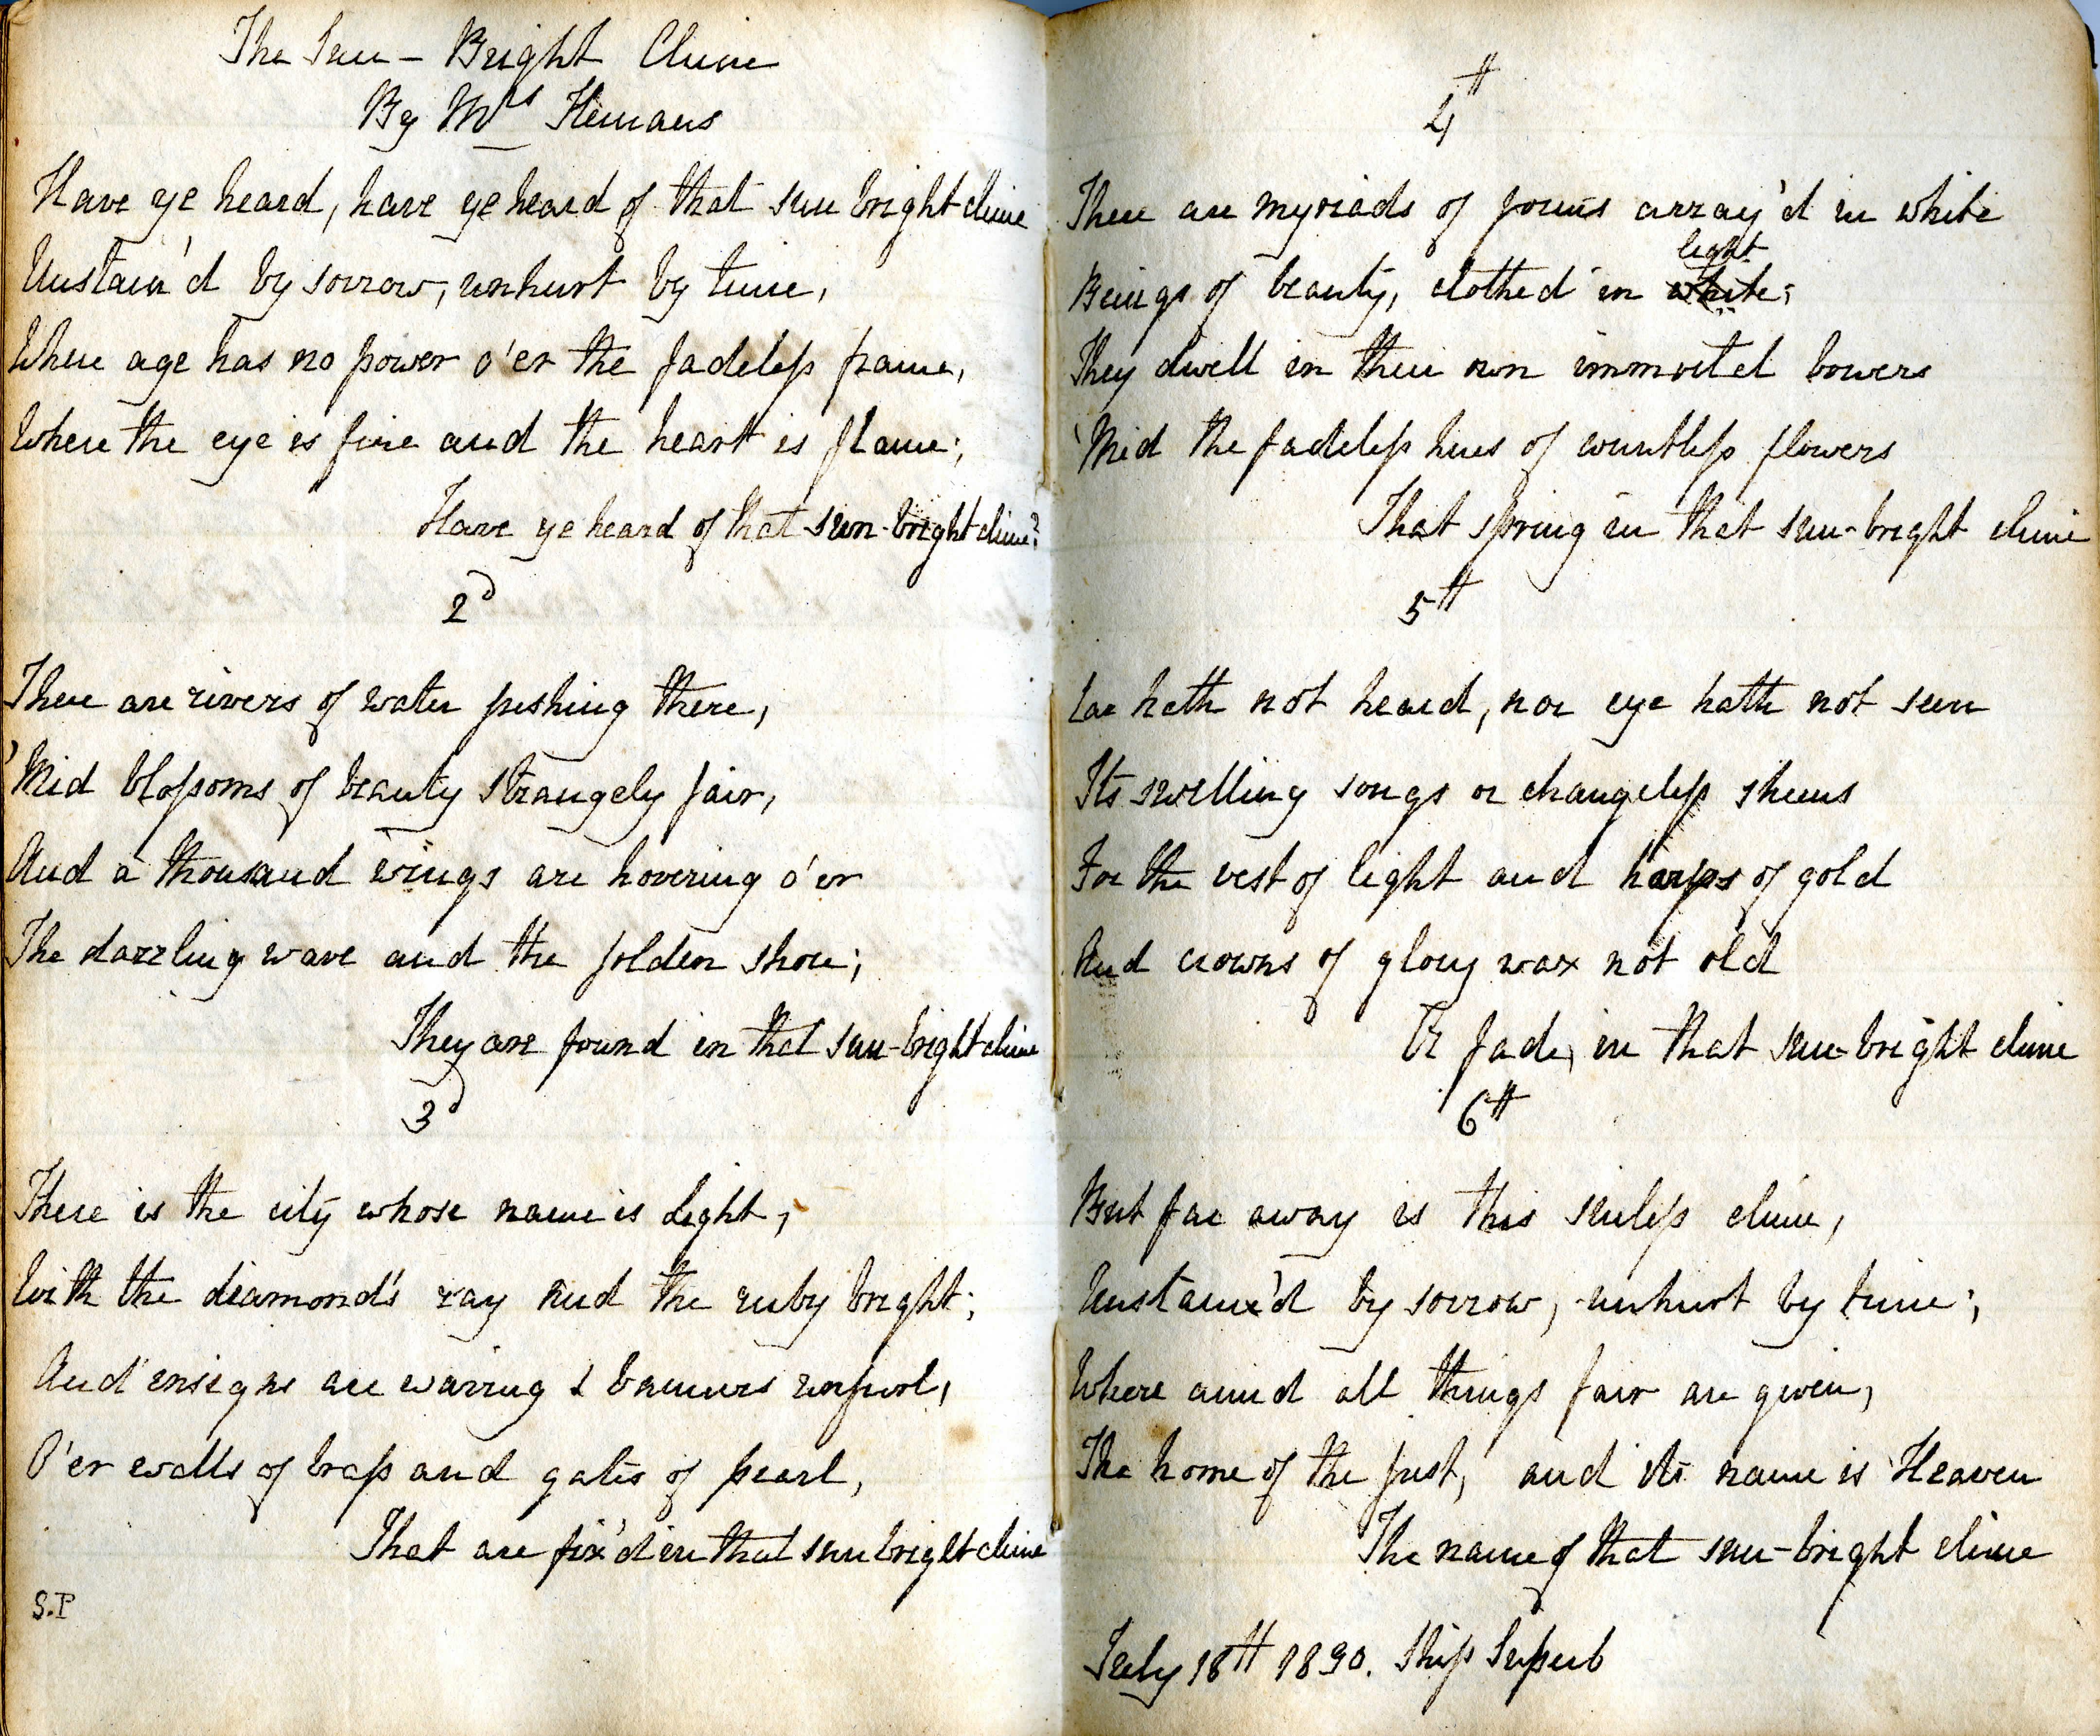 The Sun - Bright Clime
By Mrs Hemans
Have ye heard, have ye heard of that sun bright clime
Unstain'd by sorrow, unhurt by time,
Where age has no power o'er the fadeless frame,
Where the eye is fire and the heart is flame;
Have ye heard of that sun-bright clime?
2d
There are rivers of water gushing there,
'Mid blossoms of beauty strangely fair,
And a thousand wings are hovering o'er
The dazzling wave and the golden shore;
They are found in that sun-bright clime
3d
There is the city whose name is Light,
With the diamond's ray and the ruby bright;
And ensigns are waving & banners unfurl,
O'er walls of brass and gates of pearl,
That are fix'd in that sun bright clime
S.P
4th
There are myriads of forms array'd in white
light
Beings of beauty, clothed in white;
They dwell in their own immortal bowers
'Mid the fadeless hues of countless flowers
That spring in that sun-bright clime
5th
Ear hath not heard, nor eye hath not seen
Its swelling songs or changeless sheens
For the vest of light and harps of gold
And crowns of glory wax not old
Or fade, in that sun-bright clime
6th
But far away is this sinless clime,
Unstain'd by sorrow, unhurt by time;
Where amid all things fair are given,
The home of the just, and its name is Heaven
The name of that sun-bright clime
July 18th 1890. Ship Superb